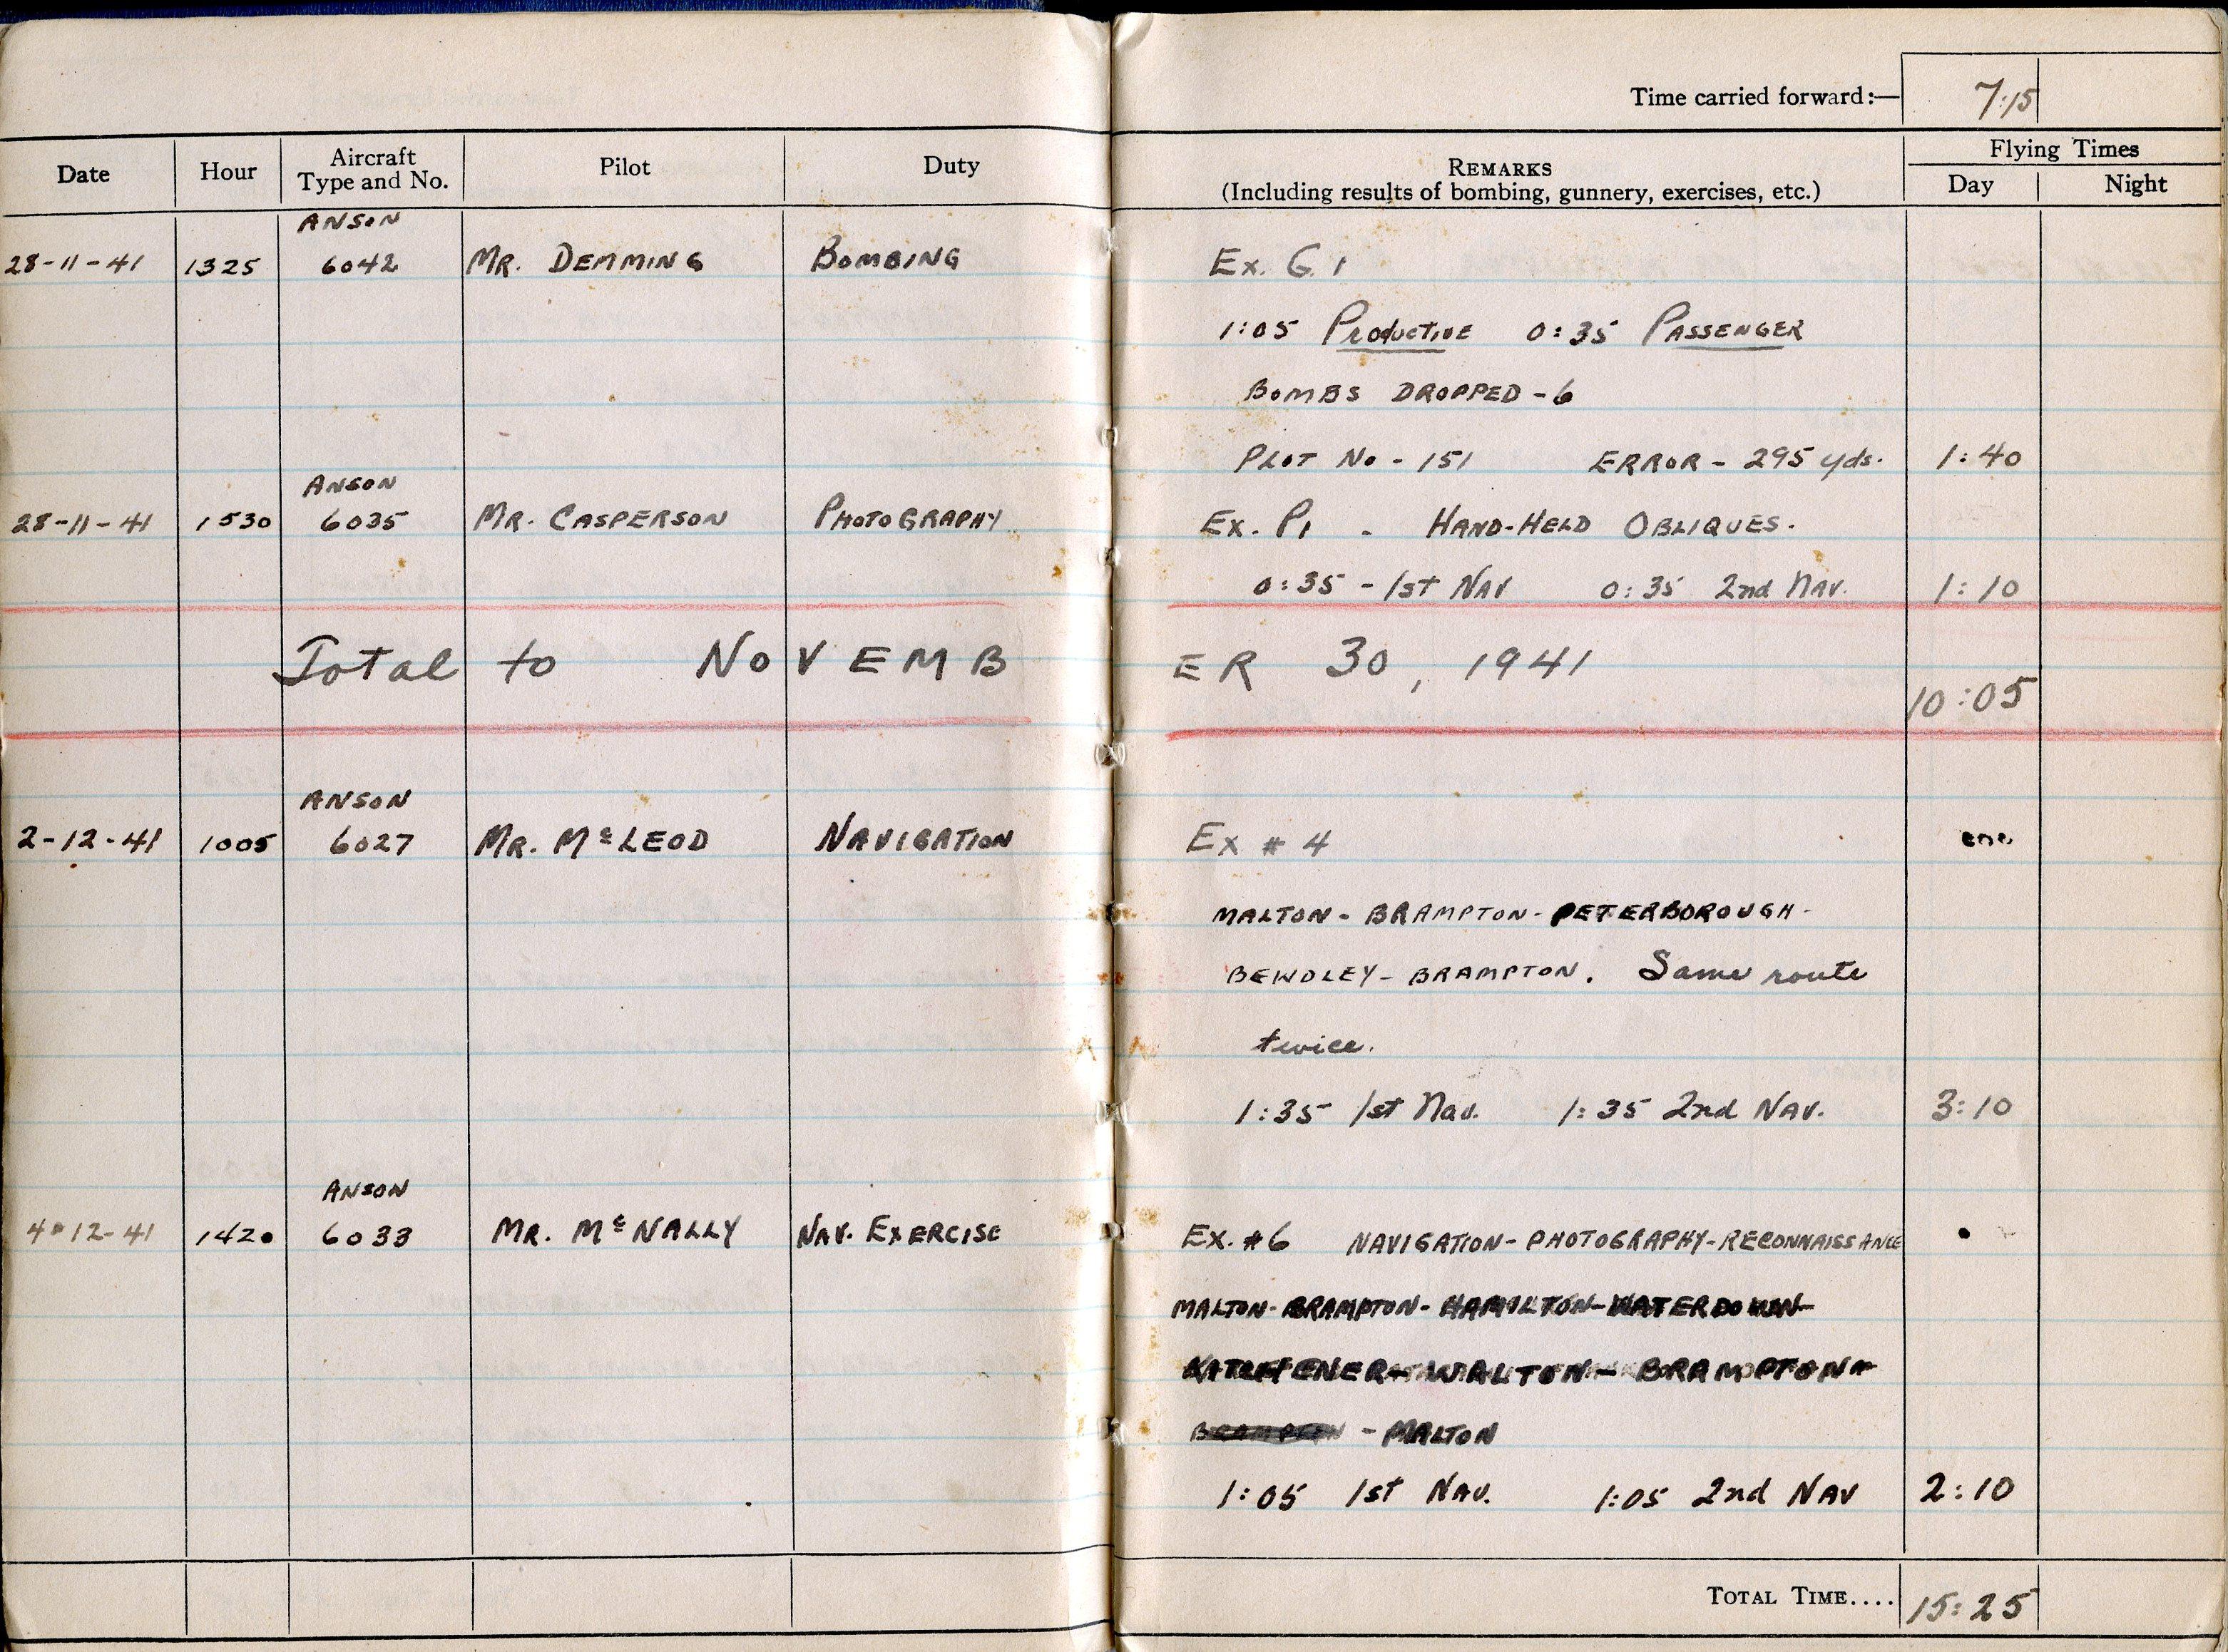 Time carried forward:— 7:15
Date Hour Aircraft Type and No. Pilot Duty REMARKS (Including results of bombing, gunnery, exercises, etc.) Flying Times Day Night
ANSON
28-11-41 1325 6042 MR. DEMMING BOMBING Ex. G.1
1:05 PRODUCTIVE 0:35 PASSENGER
BOMBS DROPPED - 6
PLOT No - 151 ERROR - 295 yds. 1:40
ANSON
28-11-41 1530 6035 MR. CASPERSON PHOTOGRAPHY Ex. P1 - HAND-HELD OBLIQUES.
0:35 - 1st NAV 0:35 2nd NAV. 1:10
Total to NOVEMBER 30, 1941
10:05
ANSON
2-12-41 1005 6027 MR. McLEOD NAVIGATION Ex # 4
MALTON - BRAMPTON - PETERBOROUGH -
BEWDLEY - BRAMPTON. Same route
twice.
1:35 1st Nav. 1:35 2nd NAV. 3:10
ANSON
4-12-41 1420 6033 MR. McNALLY NAV. EXERCISE Ex. #6 NAVIGATION - PHOTOGRAPHY - RECONNAISSANCE
MALTON - BRAMPTON - HAMILTON - WATERDOWN -
KITCHENER - WALTON - BRAMPTON -
BRAMPTON - MALTON
1:05 1st NAV. 1:05 2nd NAV 2:10
TOTAL TIME.... 15:25